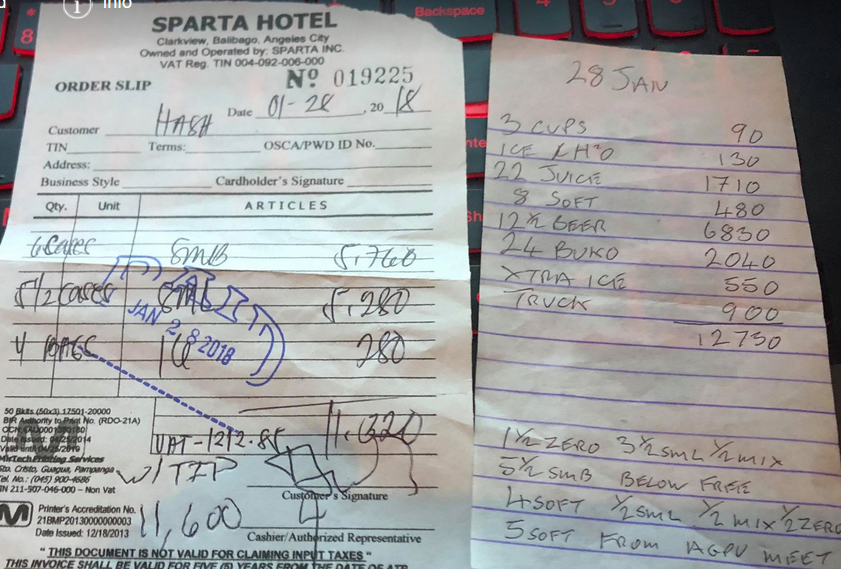 Info
8
Backspace
4
SPARTA HOTEL
Clarkview, Balibago, Angeles City
Owned and Operated by: SPARTA INC.
VAT Reg. TIN 004-092-006-000
ORDER SLIP
Nº 019225
Date 01-28, 2018
Customer HASH
TIN Terms: OSCA/PWD ID No.
Address:
Business Style Cardholder's Signature
Qty. Unit ARTICLES
6 cases SMB 5,760
5 1/2 cases SML 5,280
4 BAGS 280
PAID
JAN 28 2018
11,320
VAT-1212.85
W/ TIP
11,600
50 Bkts. (50x3) 17501-20000
BIR Authority to Print No. (RDO-21A)
Date Issued: 04/25/2014
MixTech Printing Services
Sta. Cristo, Guagua, Pampanga
Tel. No.: (045) 900-4686
TIN 211-507-046-000 – Non Vat
Customer's Signature
Printer's Accreditation No.
21BMP20130000000003
Date Issued: 12/18/2013
Cashier/Authorized Representative
" THIS DOCUMENT IS NOT VALID FOR CLAIMING INPUT TAXES "
THIS INVOICE SHALL BE VALID FOR FIVE (5) YEARS FROM THE DATE OF ATP
28 JAN
3 CUPS 90
ICE & H²O 130
22 JUICE 1710
8 SOFT 480
12 1/2 BEER 6830
24 BUKO 2040
XTRA ICE 550
TRUCK 900
12730
1 1/2 ZERO 3 1/2 SML 1/2 MIX
5 1/2 SMB BELOW FREE
4 SOFT 1/2 SML 1/2 MIX 1/2 ZERO
5 SOFT FROM AGPU MEET